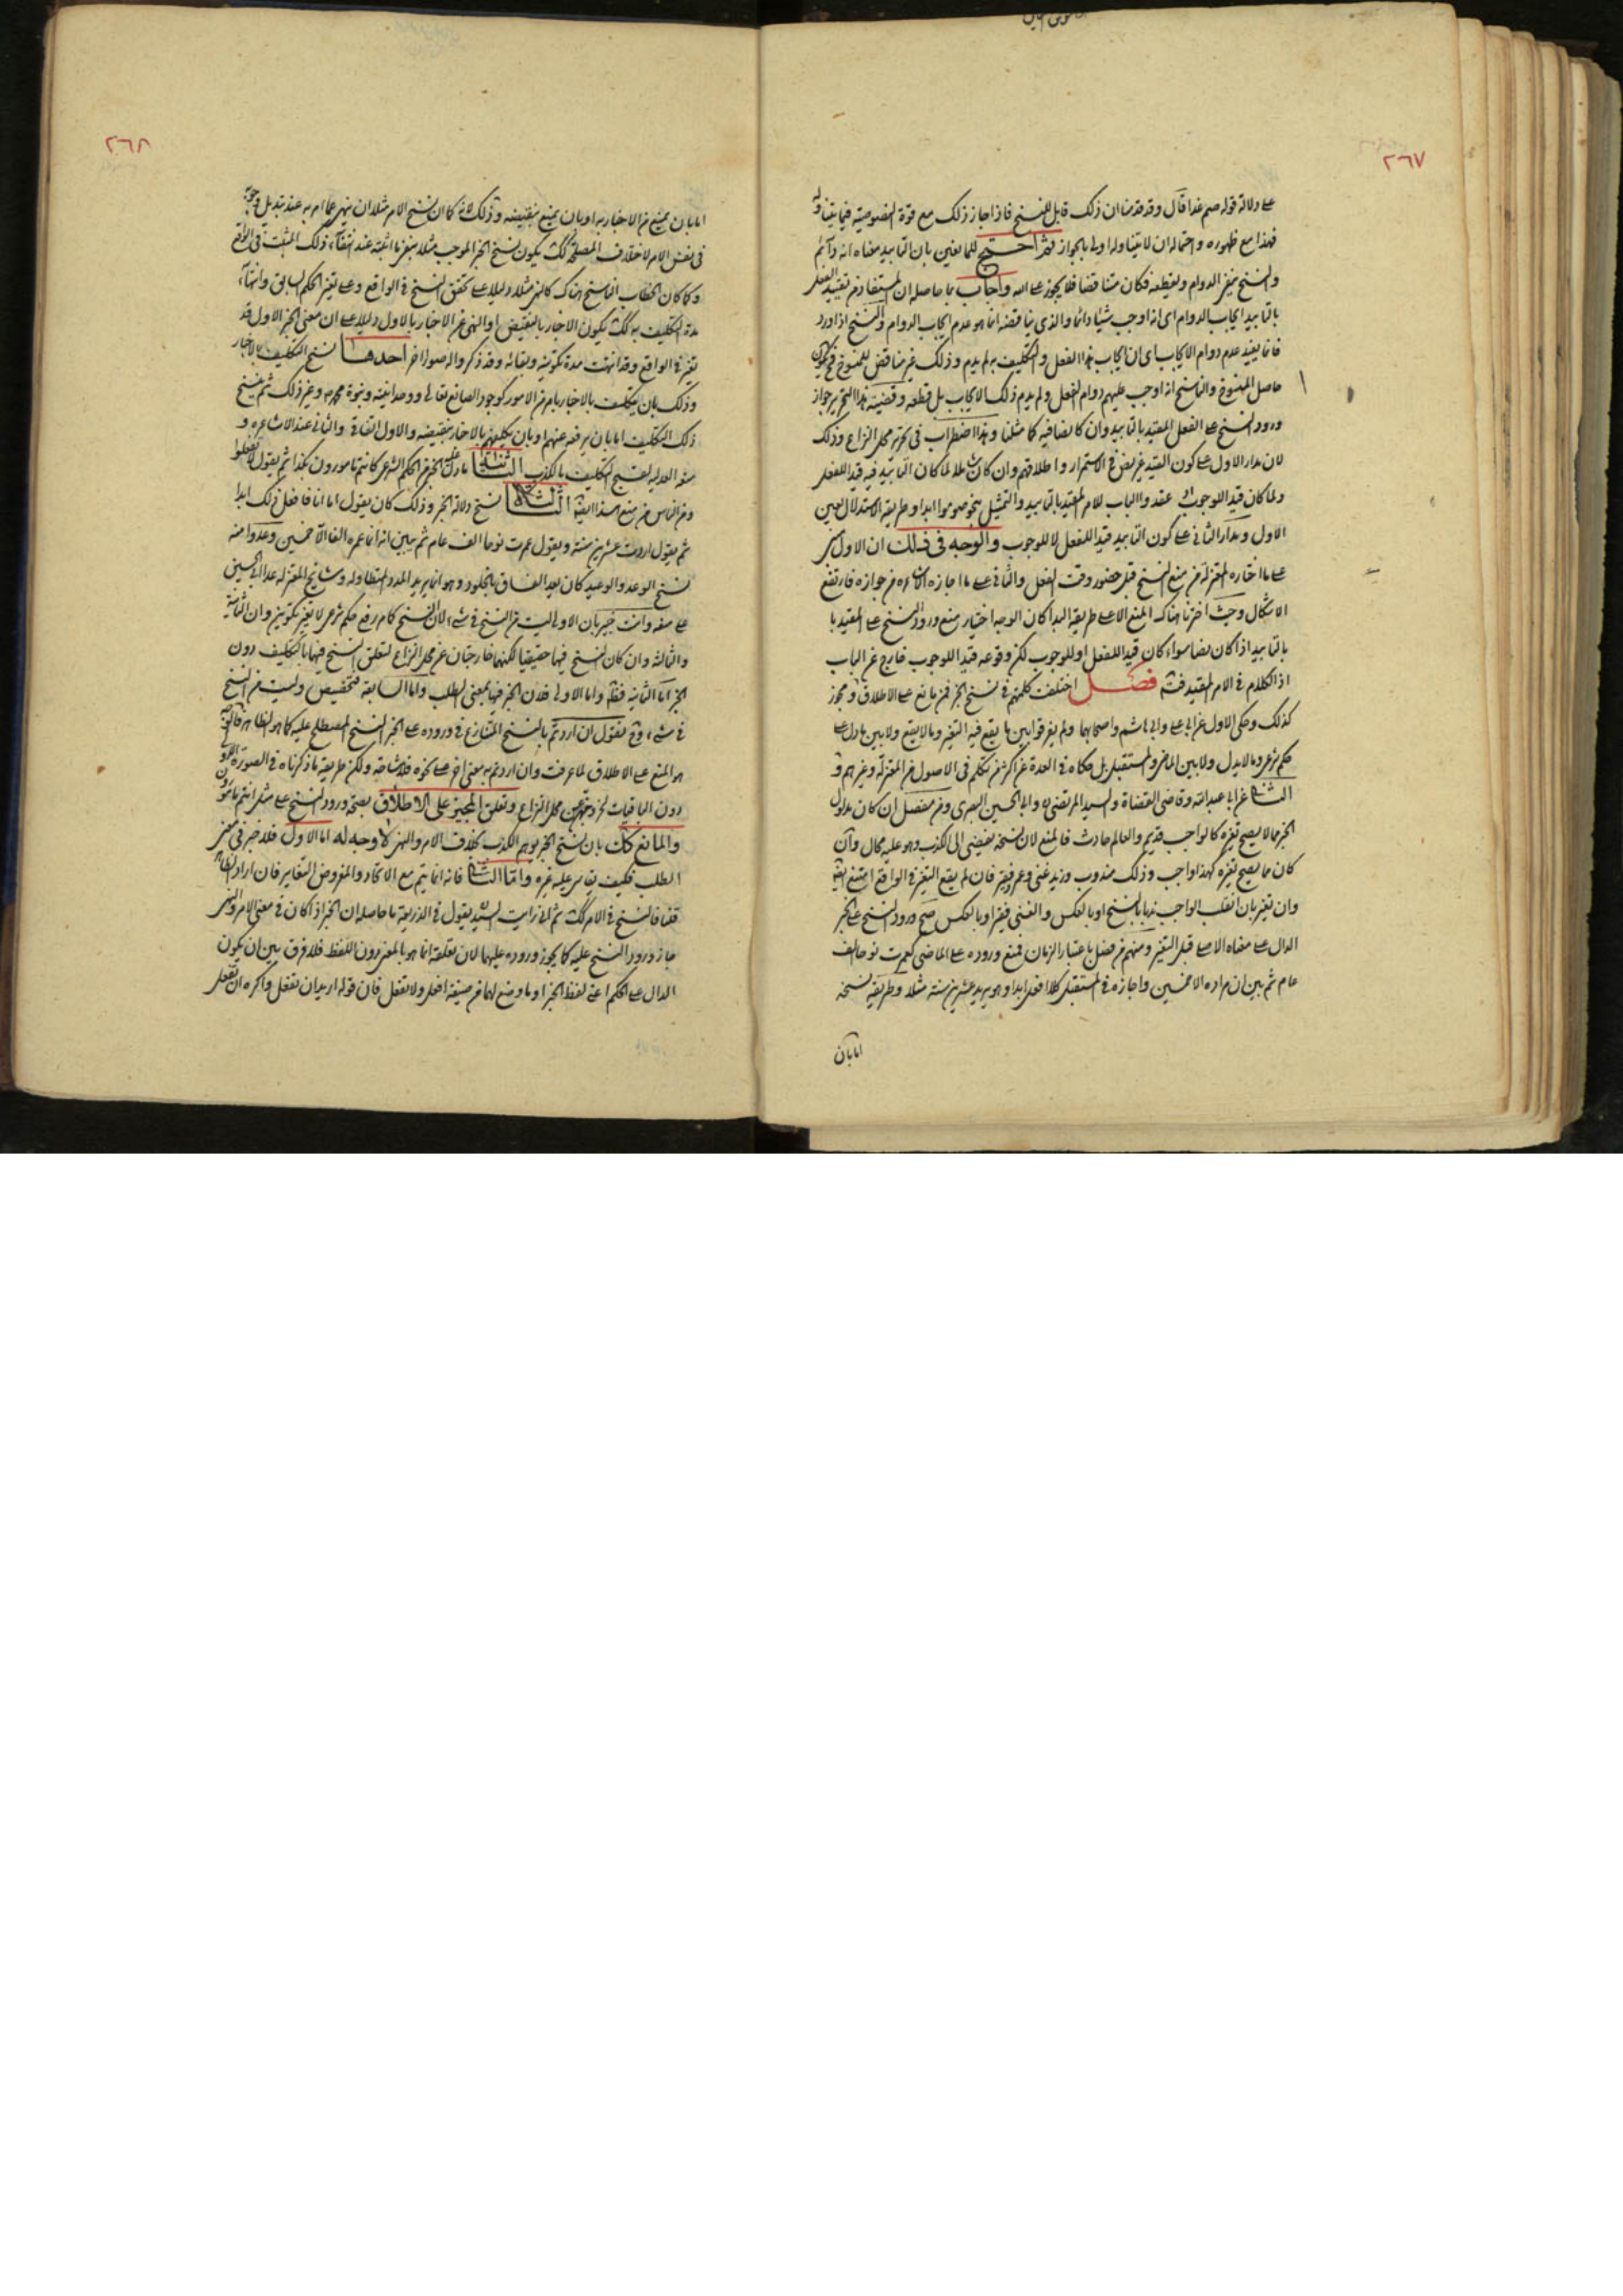 ٢٦٧
على دلالة قوله صم غدا قال وقد قدمنا ان ذلك قابل للنسخ فاذا جاز ذلك مع قوة الخصوصية فيما يتناوله
فهذا مع ظهوره واحتمال ان لا يتناوله اولى بالجواز ثم احتج للمانعين بان التابيد معناه انه دائم
والنسخ ينفي الدوام ويقطعه فكان متناقضا فلا يجوز على الله واجاب بما حاصله ان المستفاد من تقييد الفعل
بالتابيد ايجاب الدوام اى انه اوجب شيئا دائما والذى يناقضه انما هو عدم ايجاب الدوام والنسخ اذا ورد
فانما يفيد عدم دوام الايجاب اى ان ايجاب هذا الفعل والتكليف به لم يدم وذلك غير مناقض للمنسوخ فيكون
حاصل المنسوخ والناسخ انه اوجب عليهم دوام الفعل ولم يدم ذلك الايجاب بل قطعه وقضية هذا التحرير جواز
ورود النسخ على الفعل المقيد بالتابيد وان كان نصا فيه كما مثلنا وهذا اضطراب فى تحرير محل النزاع وذلك
لان مدار الاول على كون القيد غير نص فى الاستمرار واطلاقهم وان كان شاملا لما كان التابيد فيه قيدا للفعل
ولما كان قيدا للوجوب الا عقدوا الباب للامر المقيد بالتابيد والتمثيل بنحو صوموا ابدا وطريقة الاستدلال تعين
الاول ومدار الثانى على كون التابيد قيدا للفعل لا للوجوب والوجه فى ذلك ان الاول مبنى
على ما اختاره المعتزلة من منع النسخ قبل حضور وقت الفعل والثانى على ما اجازه الاشاعره من جوازه فارتفع
الاشكال وحيث اخترنا هناك المنع الا على طريقة البدا كان الوجه اختيار منع ورود النسخ على المقيد با
بالتابيد اذا كان نصا سواء كان قيدا للفعل او للوجوب لكن وقوعه قيدا للوجوب خارج عن الباب
اذ الكلام فى الامر المقيد فتثبت فصل اختلفت كلمتهم فى نسخ الخبر فمن مانع على الاطلاق ومجوز
كذلك وحكى الاول عن ابى على وابى هاشم واصحابهما ولم يفرقوا بين ما يقع فيه التغير وما لا يقع ولا بين ما دل على
حكم شرعى وما لا يدل ولا بين الماضى والمستقبل بل حكاه فى العدة عن اكثر من تكلم فى الاصول من المعتزلة وغيرهم و
الثانى عن ابى عبد الله وقاضى القضاة والسيد المرتضى وابى الحسين البصرى ومن مفصل ان كان مدلول
الخبر مما لا يصح تغيره كالواجب قديم والعالم حادث فالمنع لان نسخه يفضى الى الكذب وهو عليه محال وان
كان مما يصح تغيره كهذا واجب وذلك مندوب وزيد غنى وعمرو فقير فان لم يقع التغير فى الواقع امتنع ايضا
وان تغير بان انقلب الواجب ندبا بالنسخ او بالعكس والغنى فقيرا وبالعكس صح ورود النسخ على الخبر
الدال على معناه الاصلى قبل التغير ومنهم من فصل باعتبار الزمان فمنع وروده على الماضى كعمرت نوحا الف
عام ثم بين ان مراده الا خمسين واجازه فى المستقبل كلا افعل ابدا وهو يريد عشرين سنة مثلا وطريقة نسخه
اما بان
٢٦٨
اما بان يمنع من الاخبار به او بان يمنع بنقيضه وذلك لانه كما ان نسخ الامر مثلا ان ينهى عما امر به عند تبدل وجوه
فى نفس الامر لاختلاف المصلحة كك يكون نسخ الخبر الموجب مثلا بنفى ما اثبته عند انتفاء ذلك المثبت فى الواقع
وكما كان الخطاب الناسخ هناك كالنهى مثلا دليلا على تحقق النسخ فى الواقع وعلى تغير الحكم السابق وانتهاء
مدة التكليف به كك يكون الاخبار بالنقيض او النهى عن الاخبار بالاول دليلا على ان معنى الخبر الاول قد
تغير فى الواقع وقد انتهت مدة تكوينه وبقائه وقد ذكروا له صورا اخر احدها نسخ التكليف بالاخبار
وذلك بان يكلف بالاخبار بامر من الامور كوجود الصانع تعالى ووحدانيته ونبوة محمد ص وغير ذلك ثم ينسخ
ذلك التكليف اما بان يرفعه عنهم او بان يكلفهم بالاخبار بنقيضه والاول اتفاقى والثانى عند الاشاعره و
منعه العدليه لقبح التكليف بالكذب الثانية ما دل على الخبر من الحكم الشرعى كانتم مامورون بكذا ثم يقول لا تفعلوا
ومن الناس من منع هذا ايضا الثالثة نسخ دلالة الخبر وذلك كان يقول اما انا فافعل ذلك ابدا
ثم يقول اردت عشرين سنة ويقول عمرت نوحا الف عام ثم يبين انه انما عمره الفا الا خمسين وعدوا منه
نسخ الوعد والوعيد كان يعد الفساق بالخلود وهو انما يريد المدد المتطاوله ومشايخ المعتزله عدا ابى الحسين
على منعه وانت خبير بان الاولى ليست من النسخ فى شىء لان النسخ كما مر رفع حكم شرعى لا تغير تكوينى وان الثانية
والثالثه وان كان النسخ فيها حقيقيا لكنهما خارجتان عن محل النزاع لتعلق النسخ فيها بالتكليف دون
الخبر اما الثانية فظ واما الاولى فلان الخبر فيها بمعنى الطلب واما السابعة فتخصيص وليست من النسخ
فى شىء وح نقول ان اردتم بالنسخ المتنازع فى وروده على الخبر النسخ المصطلح عليه كما هو الظاهر فالوجه
هو المنع على الاطلاق لما عرفت وان اردتم به معنى اخر على نحوه فلا مشاحة ولكن طريقه ما ذكرناه فى الصورة الاولى
دون الباقيات لخروجهن عن محل النزاع وتعلق المجيز على الاطلاق بصحة ورود النسخ على مثل انتم مامورون
والمانع كك بان نسخ الخبر يوهم الكذب بخلاف الامر والنهى لا وجه له اما الاول فلانه خبر فى معنى
الطلب فكيف يقاس عليه غيره واما الثانى فانه انما يتم مع الاتحاد والمفروض التغاير فان اراد الظاهر
قلنا فالنسخ فى الامر كك ثم انى رايت السيد يقول فى الذريعة ما حاصله ان الخبر اذا كان فى معنى الامر والنهى
جاز ورود النسخ عليه كما يجوز وروده عليهما لان تعلقه انما هو بالمعنى دون اللفظ فلا فرق بين ان يكون
الدال على الحكم اعنى لفظ الخبر او ما وضع لهما من صيغة افعل ولا تفعل فان قوله اريد ان تفعل واكره ان تفعل